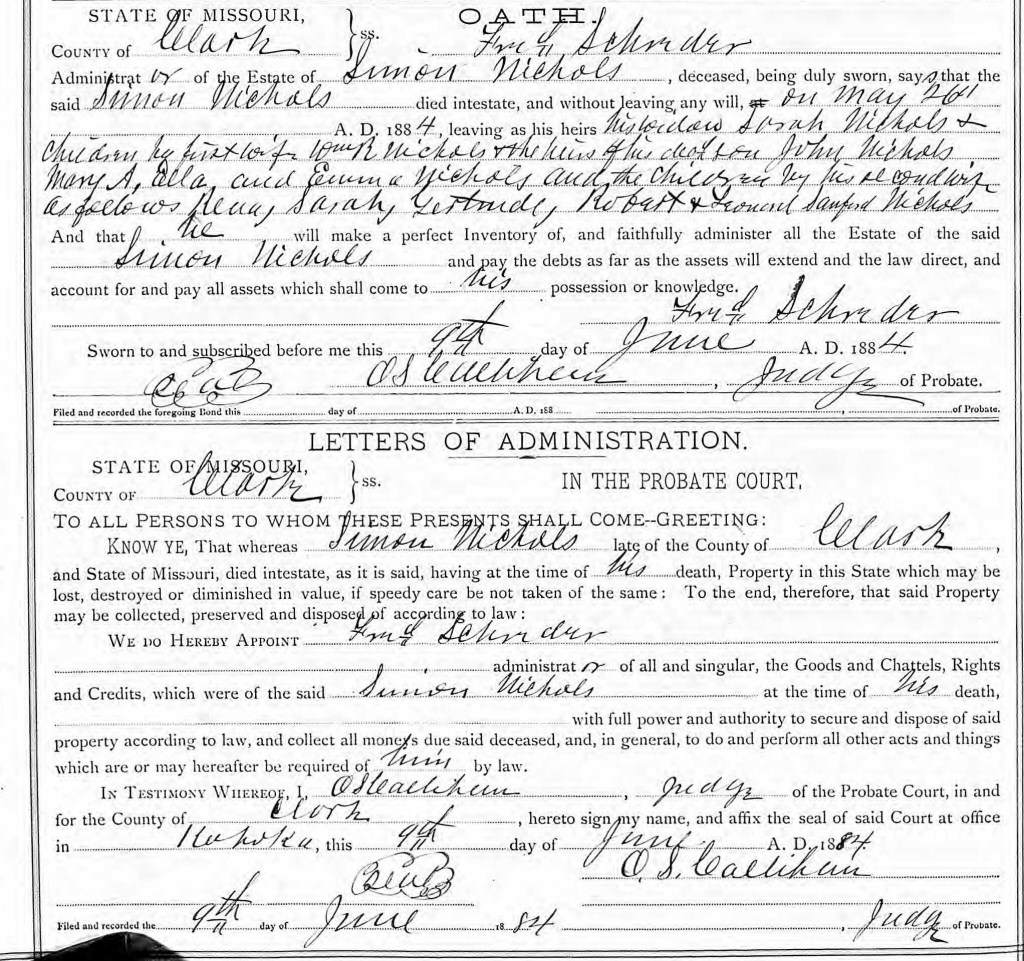 OATH.
STATE OF MISSOURI,
COUNTY OF Clark } ss. Fred Schreder
Administrat or of the Estate of Simon Nichols , deceased, being duly sworn, says that the
said Simon Nichols died intestate, and without leaving any will, on May 26
A. D. 1884, leaving as his heirs his widow Sarah Nichols &
Children by first wife Wm R Nichols & the heirs of his decd son John Nichols
Mary A, Ella, and Emma Nichols and the Children by his second wife
as follows Sarah, Gertrude, Robert & Leonerd Sanford Nichols
And that he will make a perfect Inventory of, and faithfully administer all the Estate of the said
Simon Nichols and pay the debts as far as the assets will extend and the law direct, and
account for and pay all assets which shall come to his possession or knowledge.
Fred Schreder
Sworn to and subscribed before me this 9th day of June A. D. 1884.
Seal O S Callihan , Judge of Probate.
Filed and recorded the foregoing Bond this day of A. D. 188 , of Probate.
LETTERS OF ADMINISTRATION.
STATE OF MISSOURI,
COUNTY OF Clark } ss. IN THE PROBATE COURT,
TO ALL PERSONS TO WHOM THESE PRESENTS SHALL COME--GREETING:
KNOW YE, That whereas Simon Nichols late of the County of Clark ,
and State of Missouri, died intestate, as it is said, having at the time of his death, Property in this State which may be
lost, destroyed or diminished in value, if speedy care be not taken of the same: To the end, therefore, that said Property
may be collected, preserved and disposed of according to law:
WE DO HEREBY APPOINT Fred Schreder
administrat or of all and singular, the Goods and Chattels, Rights
and Credits, which were of the said Simon Nichols at the time of his death,
with full power and authority to secure and dispose of said
property according to law, and collect all moneys due said deceased, and, in general, to do and perform all other acts and things
which are or may hereafter be required of him by law.
IN TESTIMONY WHEREOF, I, O S Callihan , Judge of the Probate Court, in and
for the County of Clark , hereto sign my name, and affix the seal of said Court at office
in Kahoka, this 9th day of June A. D. 1884.
Seal O. S. Callihan
Filed and recorded the 9th day of June 1884 , Judge of Probate.